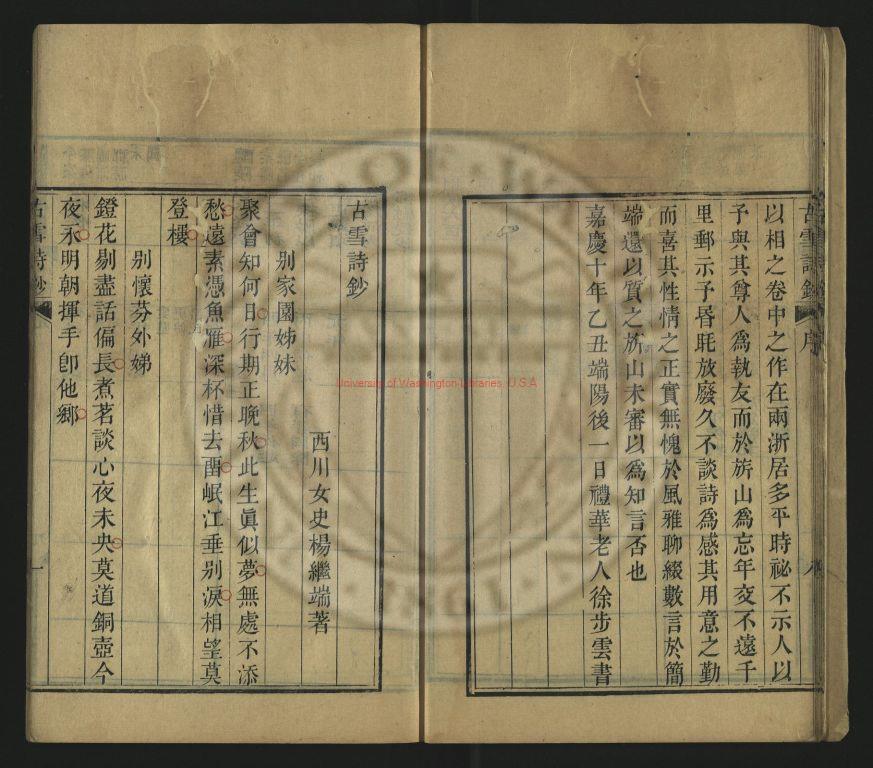 古雪詩鈔 序
以相之卷中之作在兩浙居多平時祕不示人以
予與其尊人爲執友而於斾山爲忘年交不遠千
里郵示予昏眊放廢久不談詩爲感其用意之勤
而喜其性情之正實無愧於風雅聊綴數言於簡
端還以質之斾山未審以爲知言否也
嘉慶十年乙丑端陽後一日禮華老人徐步雲書
古雪詩鈔
西川女史楊繼端著
別家園姊妹
聚會知何日行期正晚秋此生眞似夢無處不添
愁遠素憑魚雁深杯惜去畱岷江垂别淚相望莫
登樓
別懷芬外娣
鐙花剔盡話偏長煮茗談心夜未央莫道銅壺今
夜永明朝揮手卽他鄉
古雪詩鈔
一
University of Washington Libraries, U.S.A